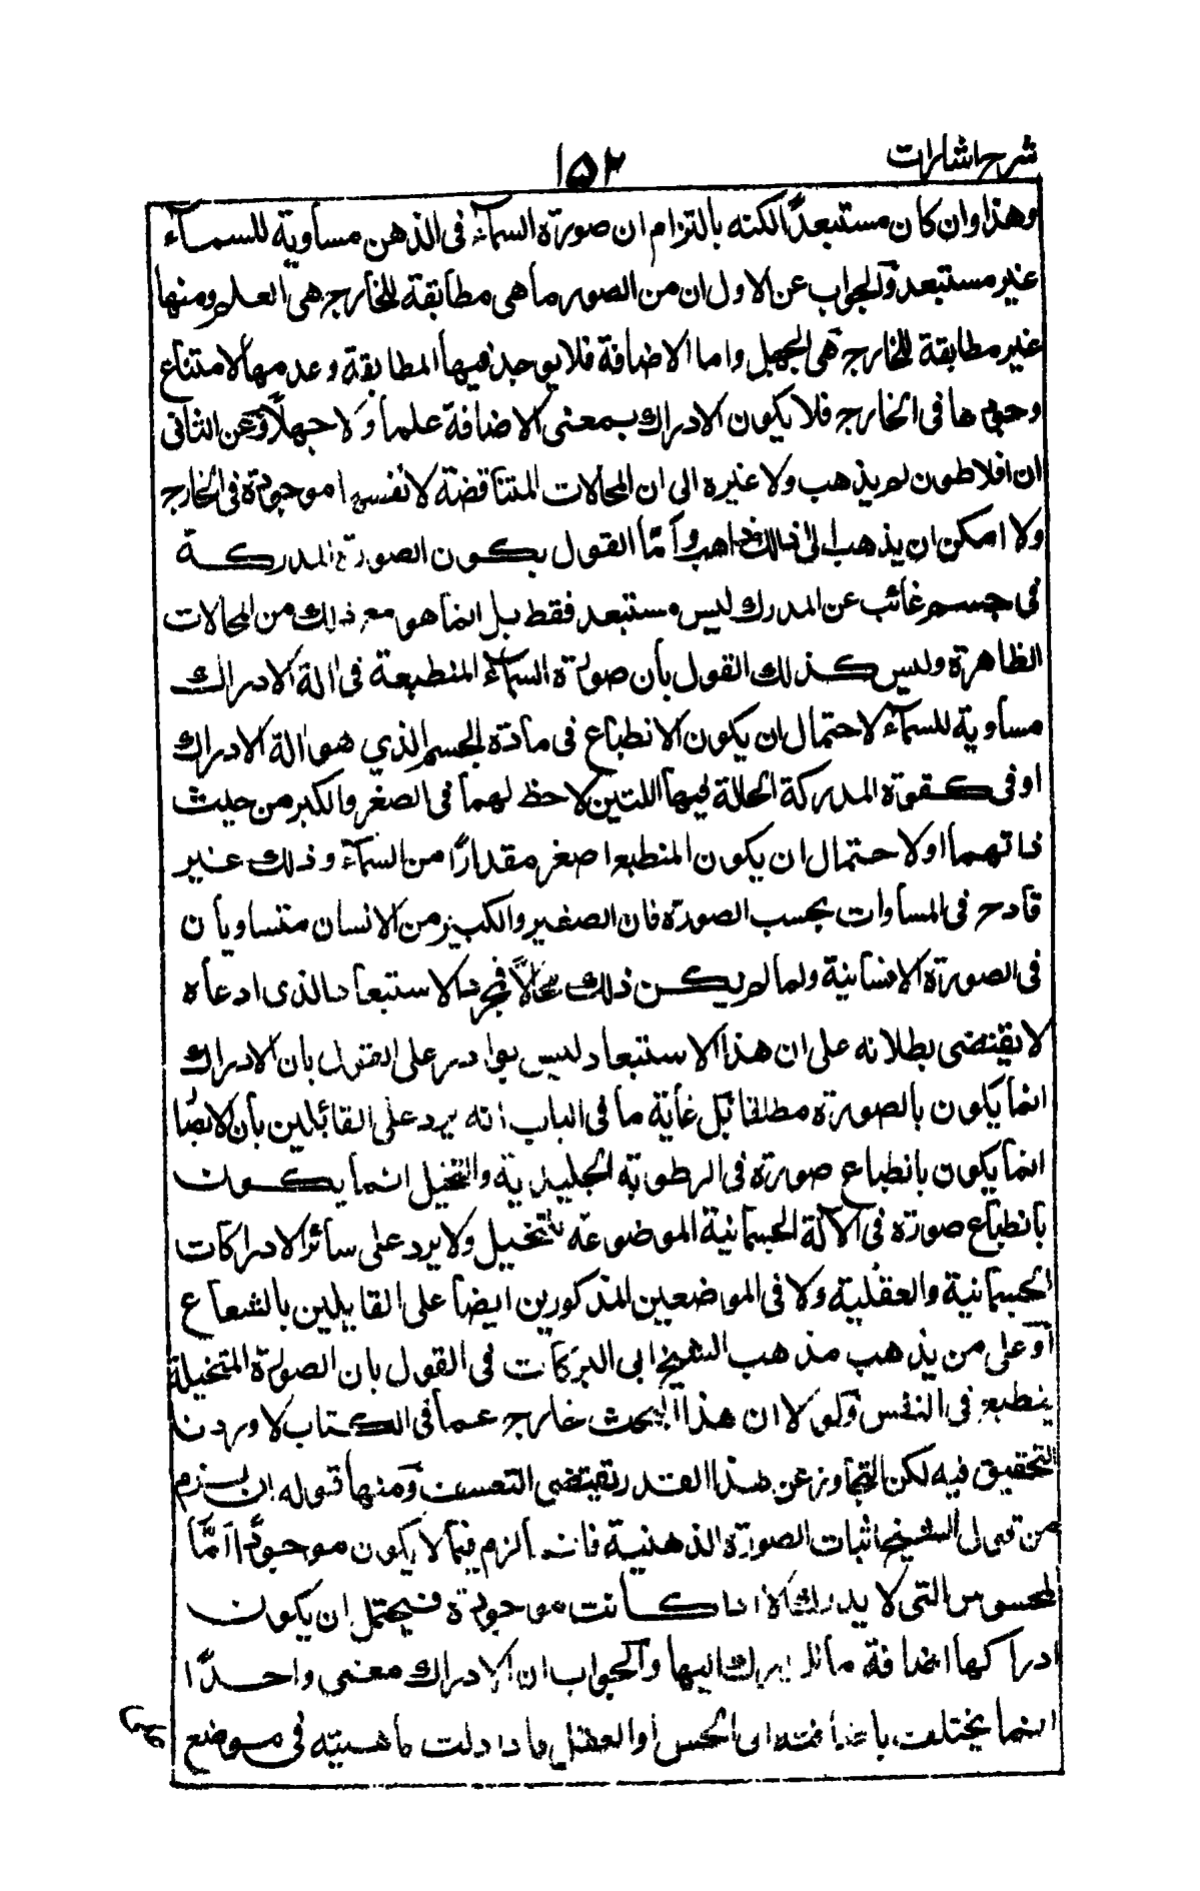 شرح اشارات
١٥٢
وهذا وان كان مستبعدًا لكنه بالتزام ان صورة السماء فى الذهن مساوية للسماء
غير مستبعد والجواب عن الاول ان من الصور ما هى مطابقة للخارج هى العلم ومنها
غير مطابقة للخارج هى الجهل واما الاضافة فلا يوجد فيها المطابقة وعدمها لامتناع
وجودها فى الخارج فلا يكون الادراك بمعنى الاضافة علما ولا جهلاً وعن الثانى
ان افلاطون لم يذهب ولا غيره الى ان المحالات المتناقضة لانفسها موجودة فى الخارج
ولا امكن ان يذهب الى ذلك ذاهب وأمّا القول بكون الصورة المدركة
فى جسم غائب عن المدرك ليس مستبعد فقط بل انما هو مع ذلك من المحالات
الظاهرة وليس كذلك القول بأن صورة السماء المنطبعة فى الة الادراك
مساوية للسماء لاحتمال ان يكون الانطباع فى مادة الجسم الذي هو الة الادراك
او فى كقوة المدركة الحالة فيها اللتين لاحظ لهما فى الصغر والكبر من حيث
ذاتهما او لاحتمال ان يكون المنطبع اصغر مقدارًا من السماء وذلك غير
قادح فى المساوات بحسب الصورة فان الصغير والكبير من الانسان متساويان
فى الصورة الانسانية ولما لم يكن ذلك محالاً فمجرد الاستبعاد الذى ادعاه
لا يقتضى بطلانه على ان هذا الاستبعاد ليس بوارد على القول بان الادراك
انما يكون بالصورة مطلقا بل غاية ما فى الباب انه يرد على القائلين بأن الابصار
انما يكون بانطباع صورة فى الرطوبة الجليدية والتخيل انما يكون
بانطباع صورة فى الآلة الجسمانية الموضوعة للتخيل ولا يرد على سائر الادراكات
الجسمانية والعقلية ولا فى الموضعين المذكورين ايضا على القايلين بالشعاع
او على من يذهب مذهب الشيخ ابى البركات فى القول بان الصورة المتخيلة
ينطبع فى النفس ولو لا ان هذا البحث خارج عما فى الكتاب لاوردنا
التحقيق فيه لكن التجاوز عن هذا القدر يقتضى التعسف ومنها قوله ان يلزم
من قول الشيخ اثبات الصورة الذهنية فانما الزم فيما لا يكون موجودًا اَمَّا
المحسوس التى لا يدرك الا اذا كانت موجودة فيحتمل ان يكون
ادراكها اضافة ما للمدرك اليها والجواب ان الادراك معنى واحدًا
انما يختلف باضافته الى الحس او العقل فاذا دلت ماهيته فى موضع